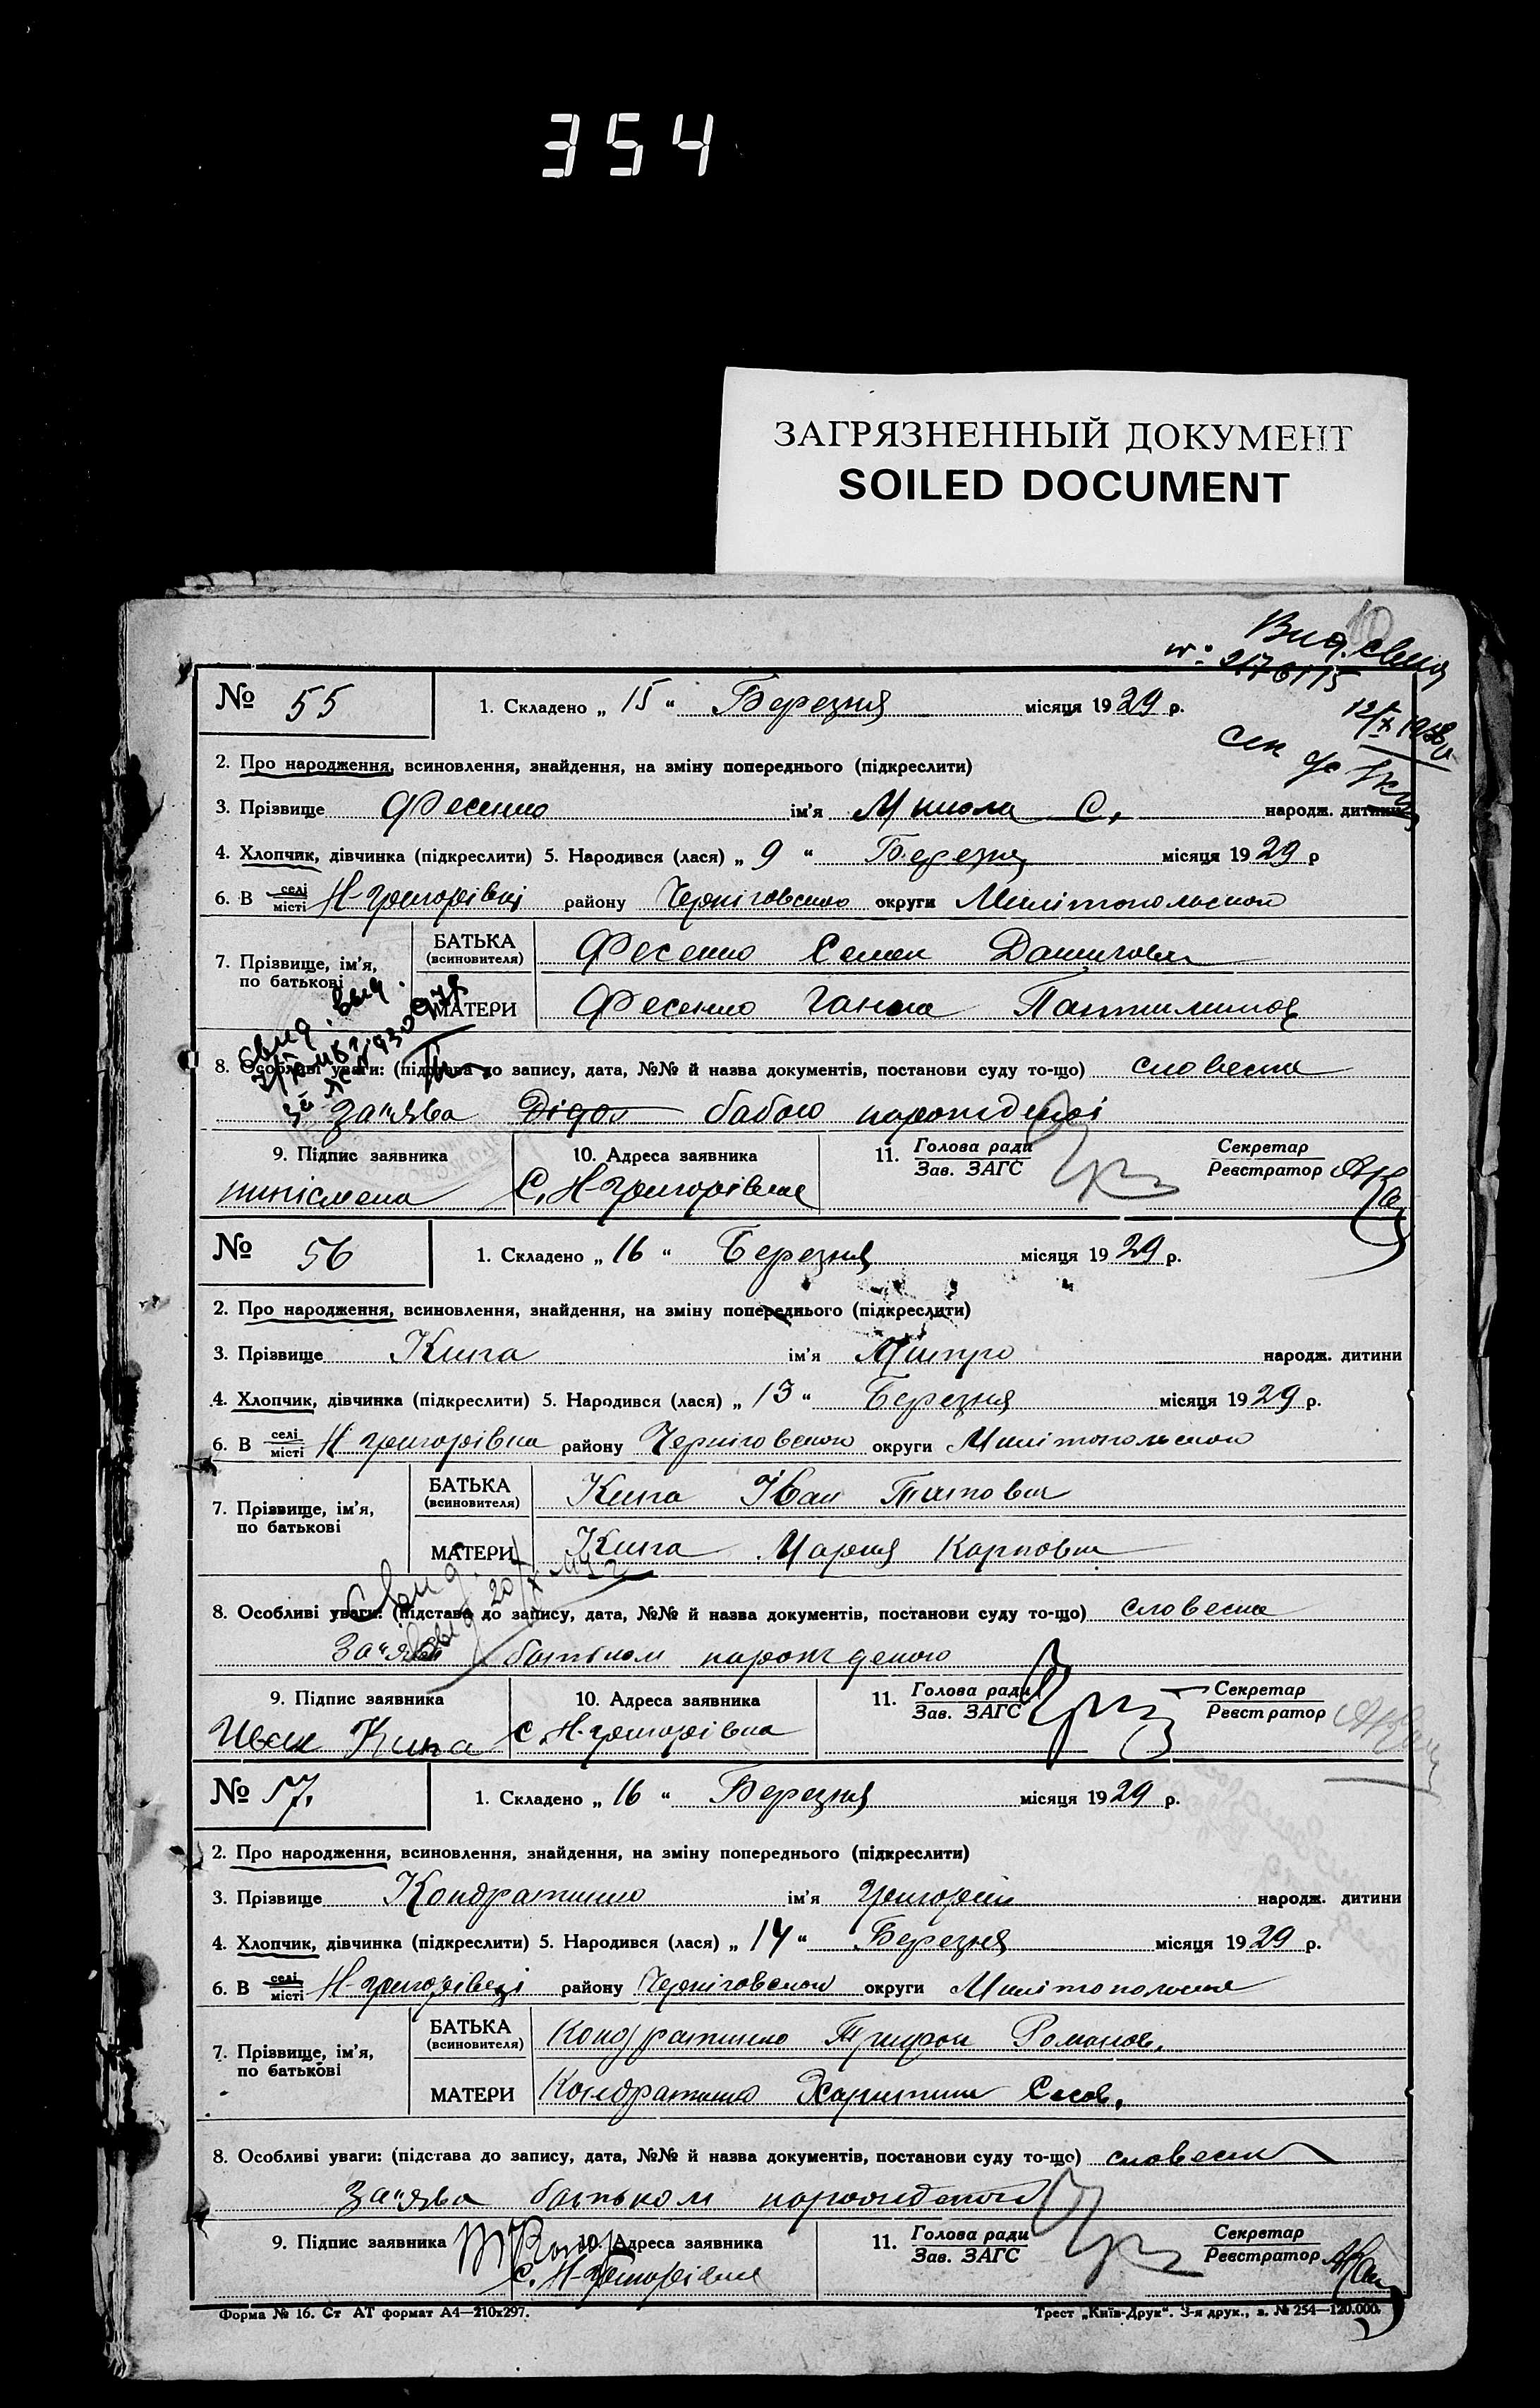 354
ЗАГРЯЗНЕННЫЙ ДОКУМЕНТ
SOILED DOCUMENT
10
Вид. свид
№ 55
1. Складено „ 15 “ Березня місяця 1929 р.
2. Про народження, всиновлення, знайдення, на зміну попереднього (підкреслити)
3. Прізвище Фесенко ім'я Микола С. народж. дитини
4. Хлопчик, дівчинка (підкреслити) 5. Народився (лася) „ 9 “ Березня місяця 1929 р
6. В селі місті Н-Григорівці району Черніговского округи Милітопольского
7. Прізвище, ім'я, по батькові
БАТЬКА (всиновителя) Фесенко Семен
МАТЕРИ Фесенко Ганна
8. Особливі уваги: (підстава до запису, дата, №№ й назва документів, постанови суду то-що) словесна
за"ява Дідом бабою
9. Підпис заявника 10. Адреса заявника 11. Голова ради Зав. ЗАГС Секретар Реєстратор
С. Н-Григорівка
№ 56
1. Складено „ 16 “ Березня місяця 1929 р.
2. Про народження, всиновлення, знайдення, на зміну попереднього (підкреслити)
3. Прізвище Книга ім'я Митро народж. дитини
4. Хлопчик, дівчинка (підкреслити) 5. Народився (лася) „ 13 “ Березня місяця 1929 р.
6. В селі місті Н Григорівка району Черніговского округи Милітопольского
7. Прізвище, ім'я, по батькові
БАТЬКА (всиновителя) Книга Іван Титович
МАТЕРИ Книга Мария Карповна
8. Особливі уваги: (підстава до запису, дата, №№ й назва документів, постанови суду то-що) словесна
за"ява батьком народженого
9. Підпис заявника 10. Адреса заявника 11. Голова ради Зав. ЗАГС Секретар Реєстратор
Иван Книга С. Н-Григорівка
№ 57.
1. Складено „ 16 “ Березня місяця 1929 р.
2. Про народження, всиновлення, знайдення, на зміну попереднього (підкреслити)
3. Прізвище Кондратенко ім'я Григорій народж. дитини
4. Хлопчик, дівчинка (підкреслити) 5. Народився (лася) „ 14 “ Березня місяця 1929 р.
6. В селі місті Н-Григорівці району Черніговского округи
7. Прізвище, ім'я, по батькові
БАТЬКА (всиновителя) Кондратенко Трифон Романов.
МАТЕРИ Кондратенко Харитина
8. Особливі уваги: (підстава до запису, дата, №№ й назва документів, постанови суду то-що) словесна
за"ява батьком народженого
9. Підпис заявника 10. Адреса заявника 11. Голова ради Зав. ЗАГС Секретар Реєстратор
С. Н-Григорівка
Форма № 16. Ст АТ формат А4—210x297. Трест „Київ-Друк“. 3-я друк., з. № 254—120.000.